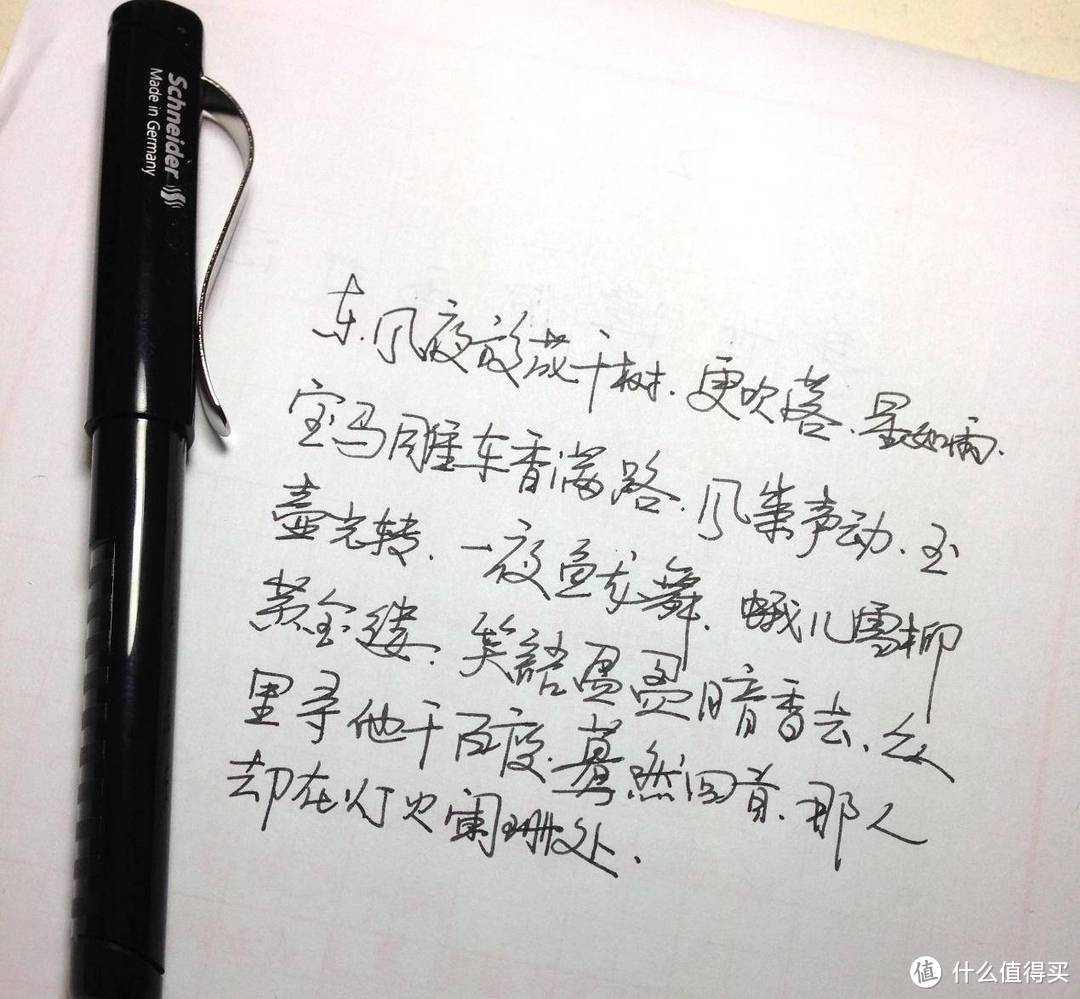 Schneider
Made in Germany
东风夜放花千树.更吹落.星如雨.
宝马雕车香满路.风箫声动.玉
壶光转.一夜鱼龙舞.蛾儿雪柳
黄金缕.笑語盈盈暗香去.众
里寻他千百度.蓦然回首.那人
却在灯火阑珊处.
值 什么值得买